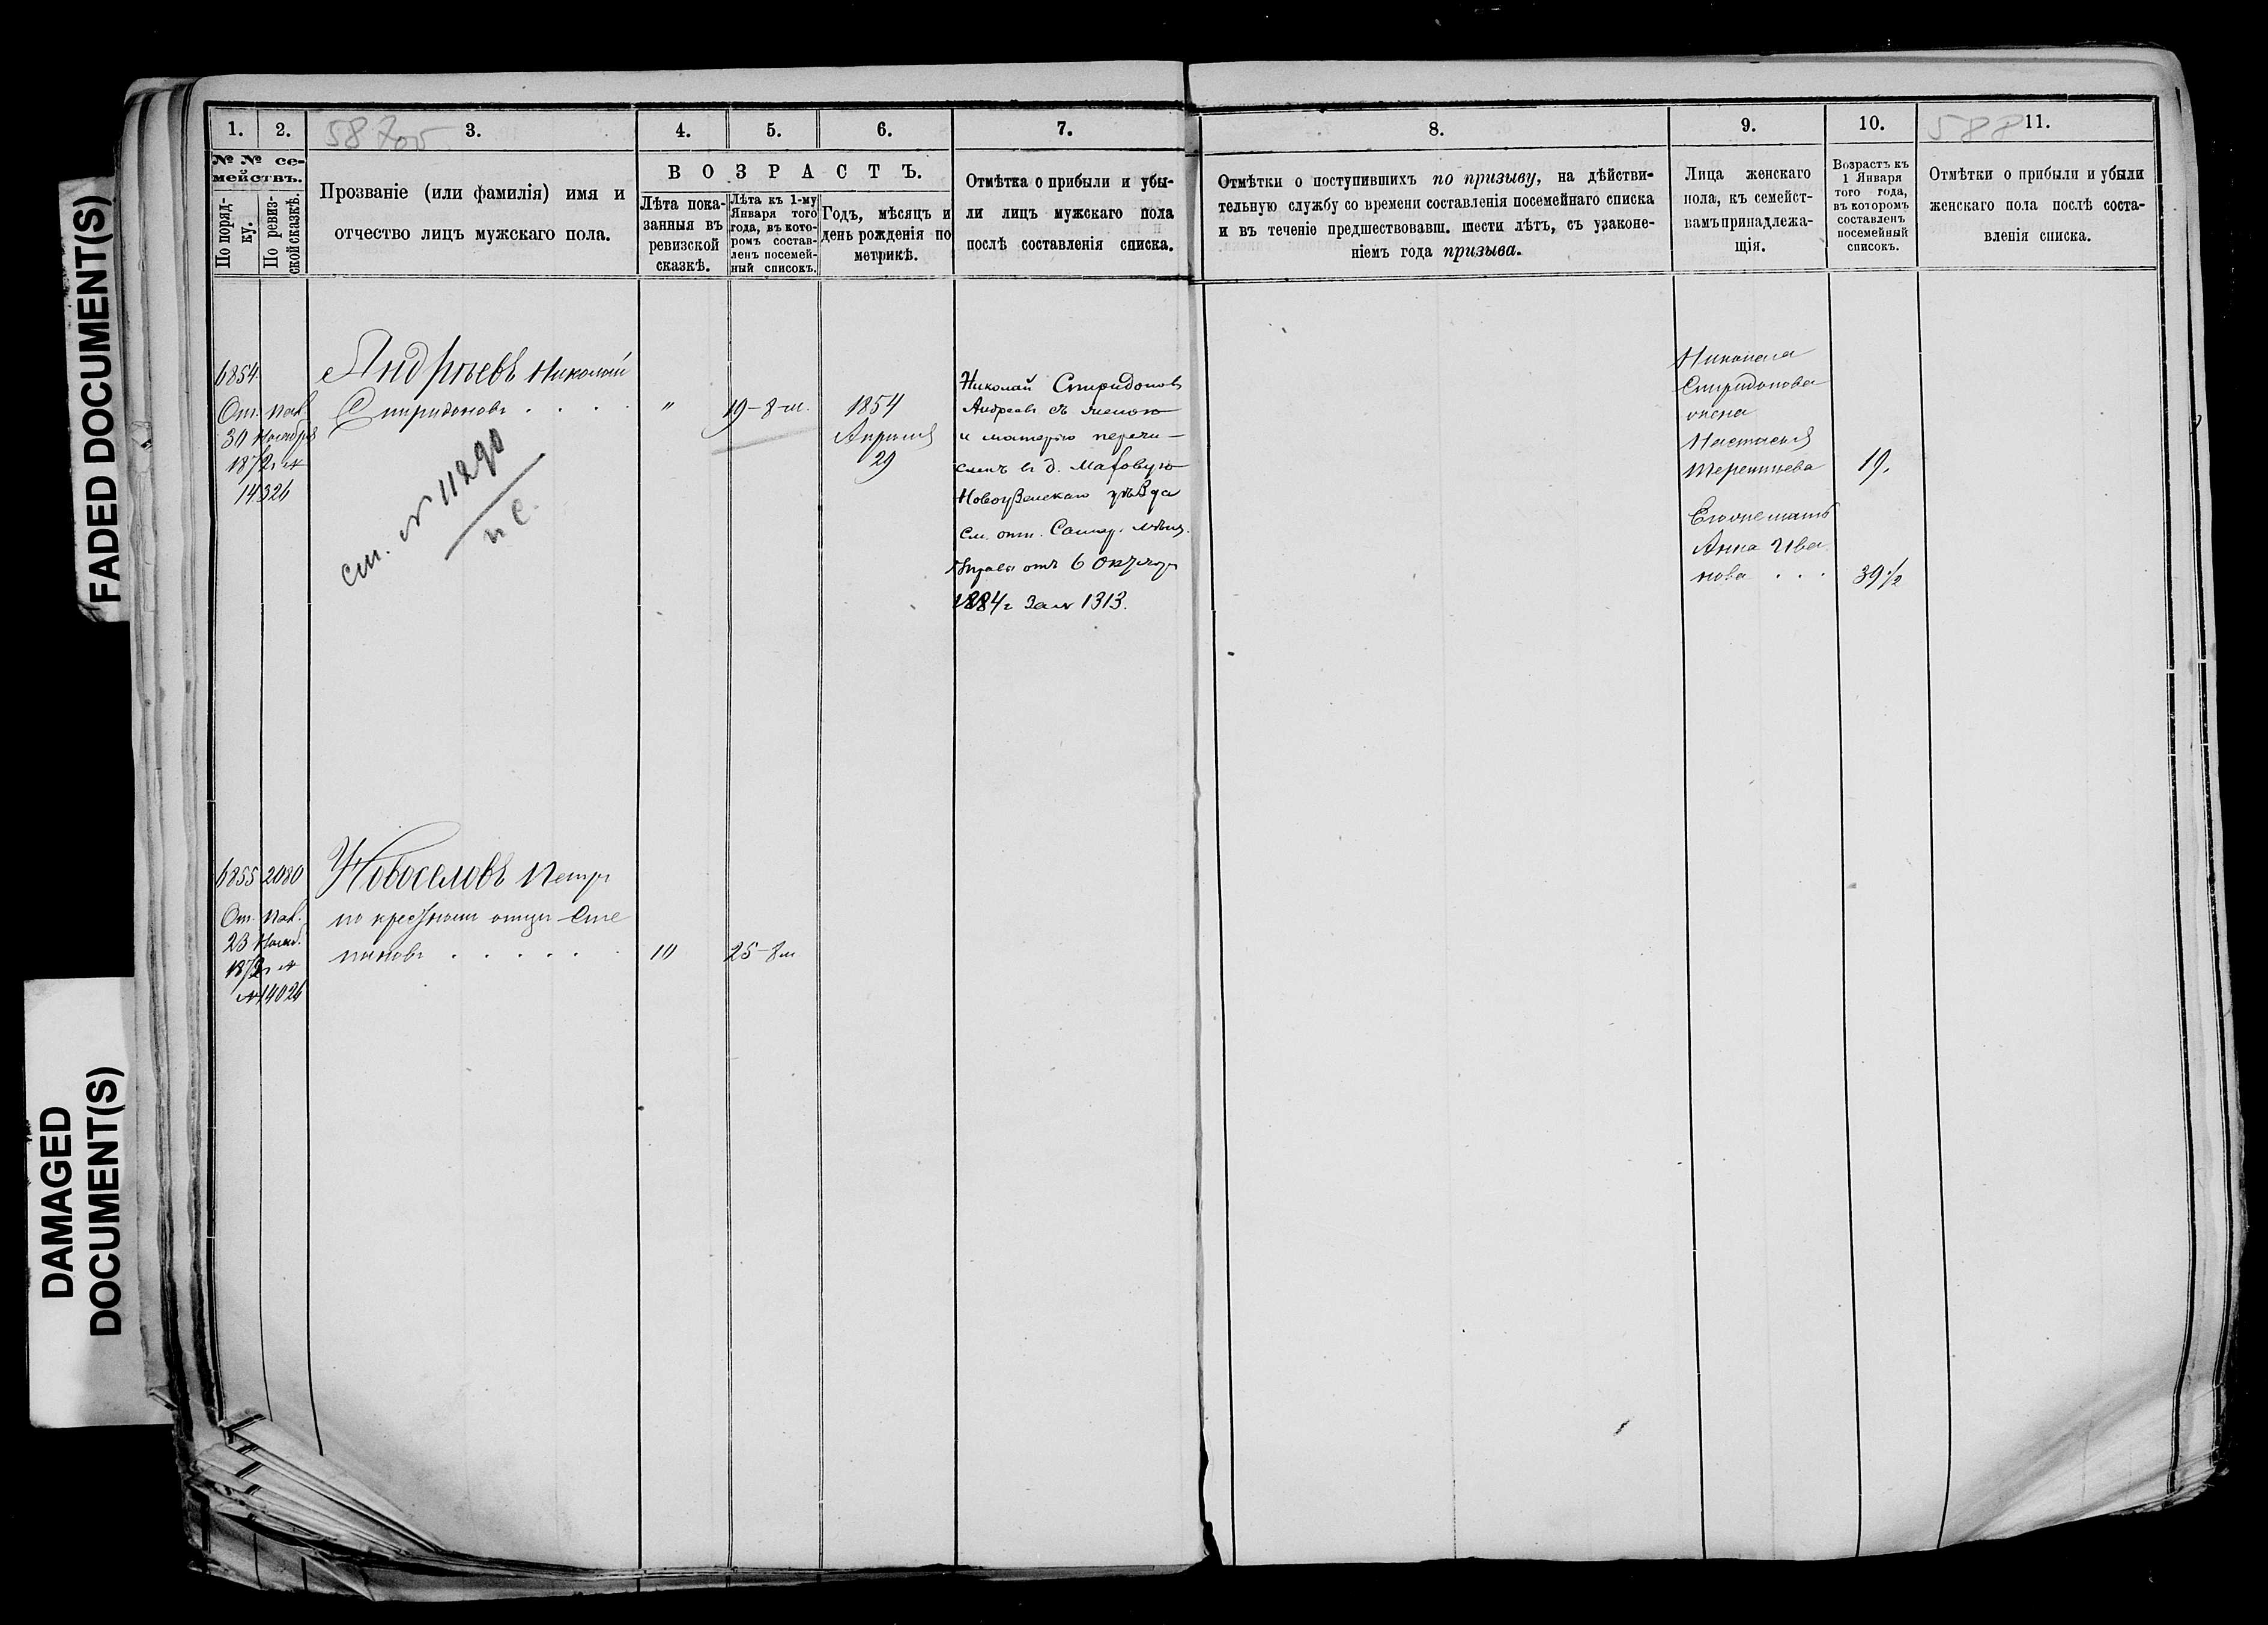 FADED DOCUMENT(S)
DAMAGED
DOCUMENT(S)
1.
2.
587об
3.
4.
5.
6.
7.
8.
9.
10.
588
11.
№ № се-
мействъ.
По поряд-
ку.
По ревиз-
ской сказкѣ.
Прозваніе (или фамилія) имя и
отчество лицъ мужскаго пола.
ВОЗРАСТЪ.
Лѣта пока-
занныя въ
ревизской
сказкѣ.
Лѣта къ 1-му
Января того
года, въ кото-
ромъ состав-
ленъ посемей-
ный списокъ.
Годъ, мѣсяцъ и
день рожденія по
метрикѣ.
Отмѣтка о прибыли и убы-
ли лицъ мужскаго пола
послѣ составленія списка.
Отмѣтки о поступившихъ по призыву, на дѣйстви-
тельную службу со времени составленія посемейнаго списка
и въ теченіе предшествовавш. шести лѣтъ, съ узаконе-
ніемъ года призыва.
Лица женскаго
пола, къ семейст-
вамъ принадлежа-
щія.
Возрастъ къ
1 Января
того года,
въ которомъ
составленъ
посемейный
списокъ.
Отмѣтки о прибыли и убыли
женскаго пола послѣ соста-
вленія списка.
6854
От. Пал.
30 Ноября
1872 г №
14326
Андреевъ Николай
Спиридоновъ . . . .
"
19-8-м.
1854
Апрѣля
29
см. № 11290
п с.
Николай Спиридоновъ
Андреевъ съ женою
и матерью перечи-
сленъ въ д.
Новоузенскаго уѣзда
см. отн. Самар. мѣщ.
Управы отъ 6 Октября
1884 г за № 1313.
Николая
Спиридонова
жена
Настасья
Терентьева
19.
Его же мать
Анна Ива
нова . . .
39 1/2
6855
2080
От. Пал.
23 Нояб.
1872 г №
№ 14026
Новоселовъ Петръ
по крестному отцу Сте
пановъ . . . . .
10
25-8м